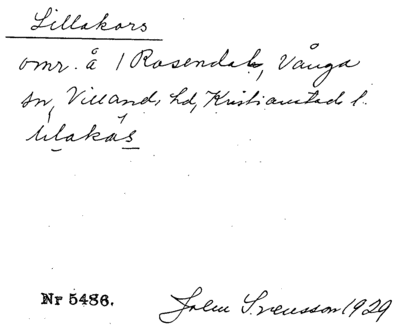 Lillakors
omr. å / Rosendal, Vånga
sn, Villand, hd, Kristianstad l.
lilakás
Nr 5486. John Svensson 1929